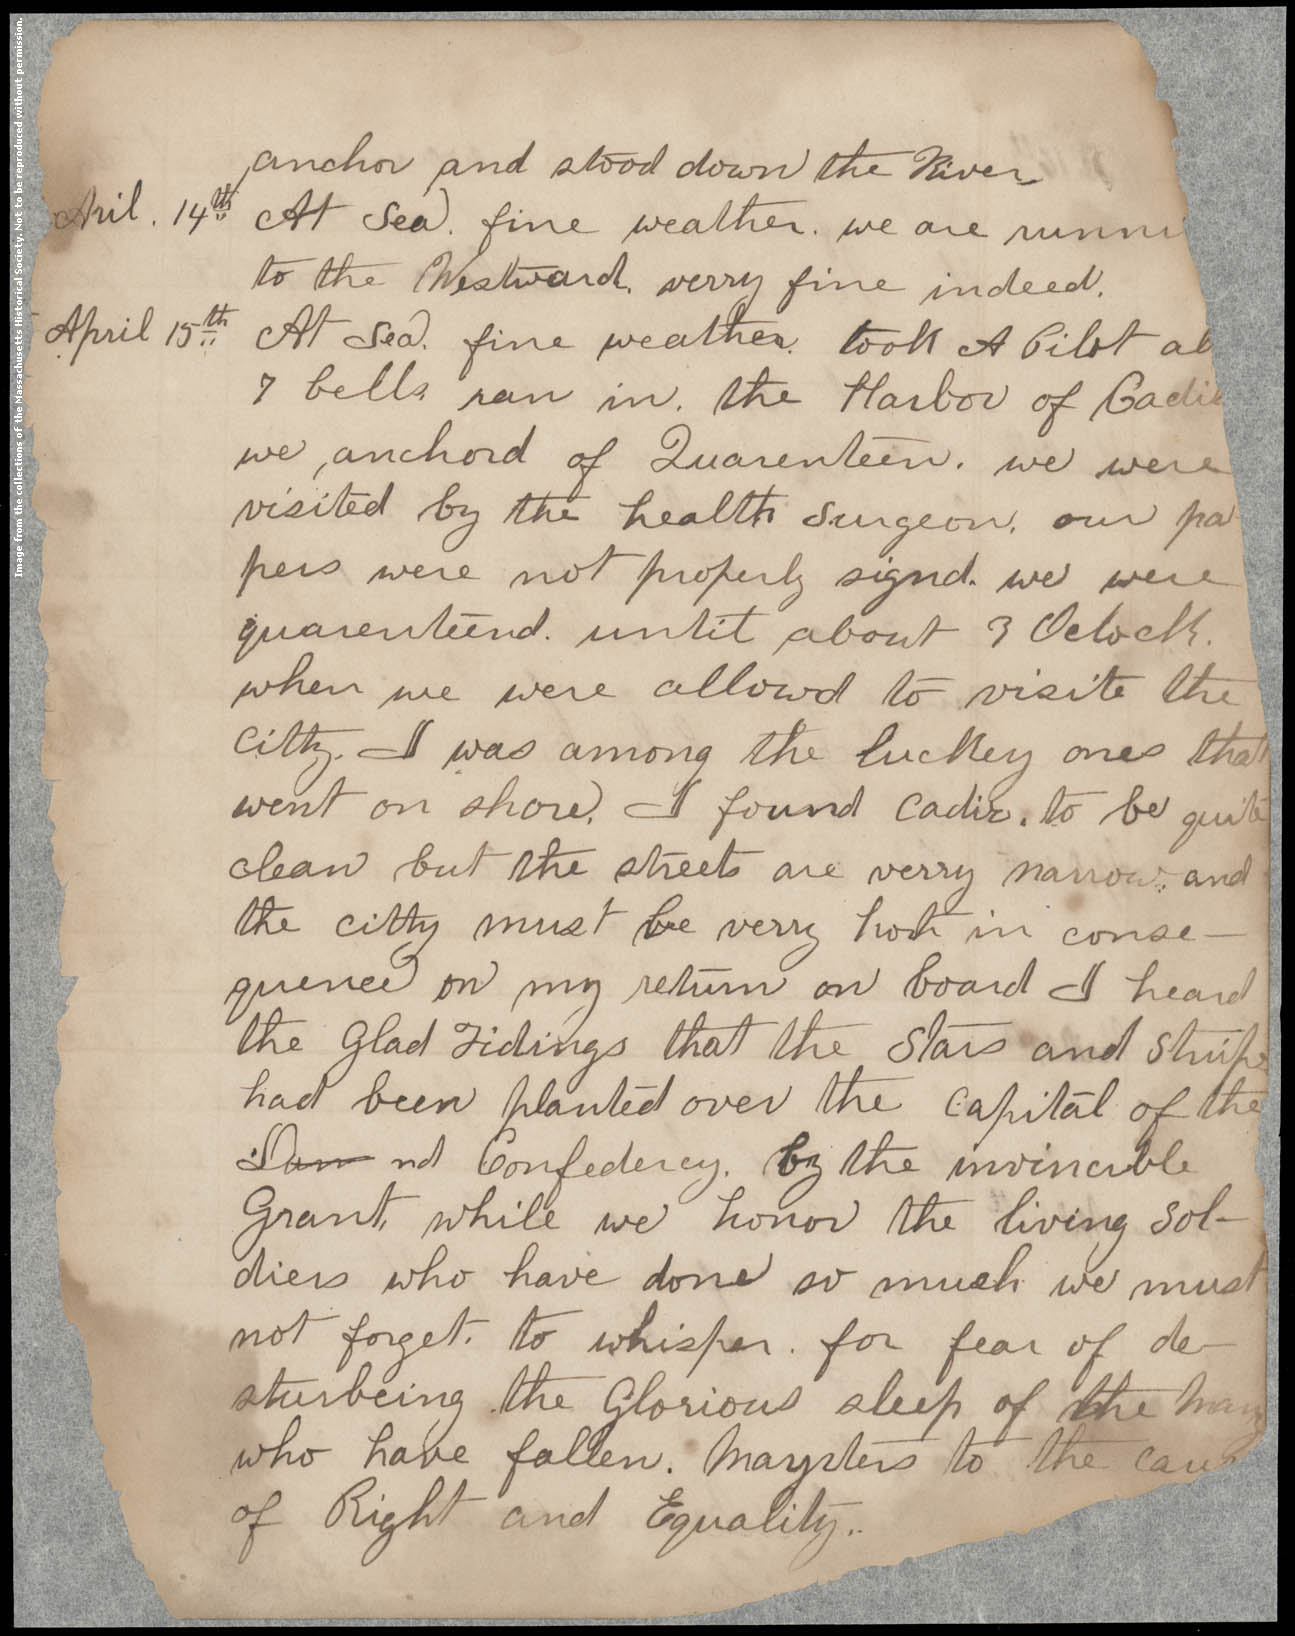 Image from the collections of the Massachusetts Historical Society. Not to be reproduced without permission.
anchor and stood down the River
Aril. 14th At Sea. fine weather. we are runni
to the Westward. verry fine indeed.
April 15th At Sea. fine weather. took A Pilot at
7 bells ran in. the Harbor of Cadiz
we anchord of Quarenteen. we were
visited by the health Surgeon. our pa
pers were not properly signd. we were
quarenteend. untit about 3 Oclock.
when we were allowd to visite the
citty. I was among the luckey ones that
went on shore. I found Cadiz. to be quite
clean but the streets are verry narrow. and
the citty must be verry hot in conse-
quence on my return on board I heard
the Glad Tidings that the Stars and Stripe
had been planted over the Capital of the
Dam nd Confedercy. by the invincible
Grant. while we honor the living Sol-
diers who have done so much we must
not forget. to whisper. for fear of de-
sturbeing the Glorious sleep of the many
who have fallen. Maysters to the caus
of Right and Equality..